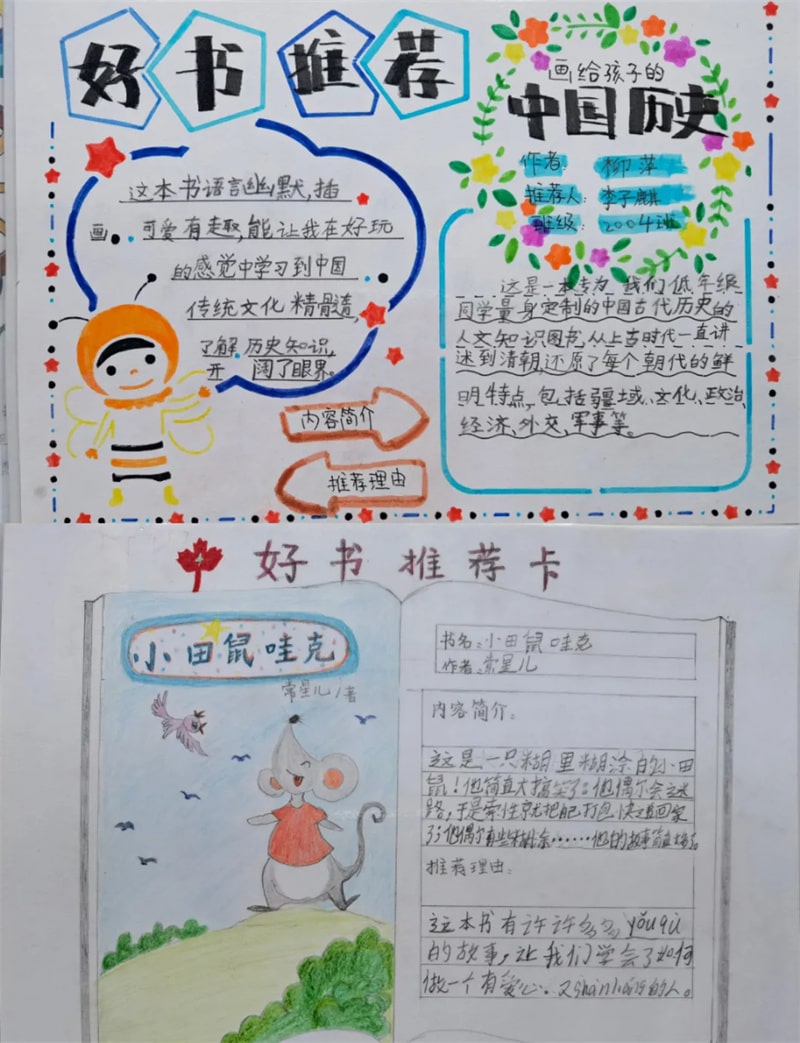 好书推荐
画给孩子的
中国历史
作者: 柳萍
推荐人: 李子麒
班级: 2004班
这本书语言幽默,插
画可爱有趣,能让我在好玩
的感觉中学习到中国
传统文化精髓,
了解历史知识,
开阔了眼界。
内容简介
推荐理由
这是一本专为我们低年级
同学量身定制的中国古代历史的
人文知识图书,从上古时代一直讲
述到清朝,还原了每个朝代的鲜
明特点,包括疆域、文化、政治、
经济、外交、军事等。
好书推荐卡
小田鼠哇克
常星儿/著
书名:小田鼠哇克
作者:常星儿
内容简介:
这是一只糊里糊涂的小田
鼠!他简直太搞笑了。他偶尔会迷
路,于是索性就把自己打包快递回家
了;他偶尔有些糊涂……他的故事简直
推荐理由:
这本书有许许多多yǒuqù
的故事,让我们学会了如何
做一个有爱心、又shànliáng的人。